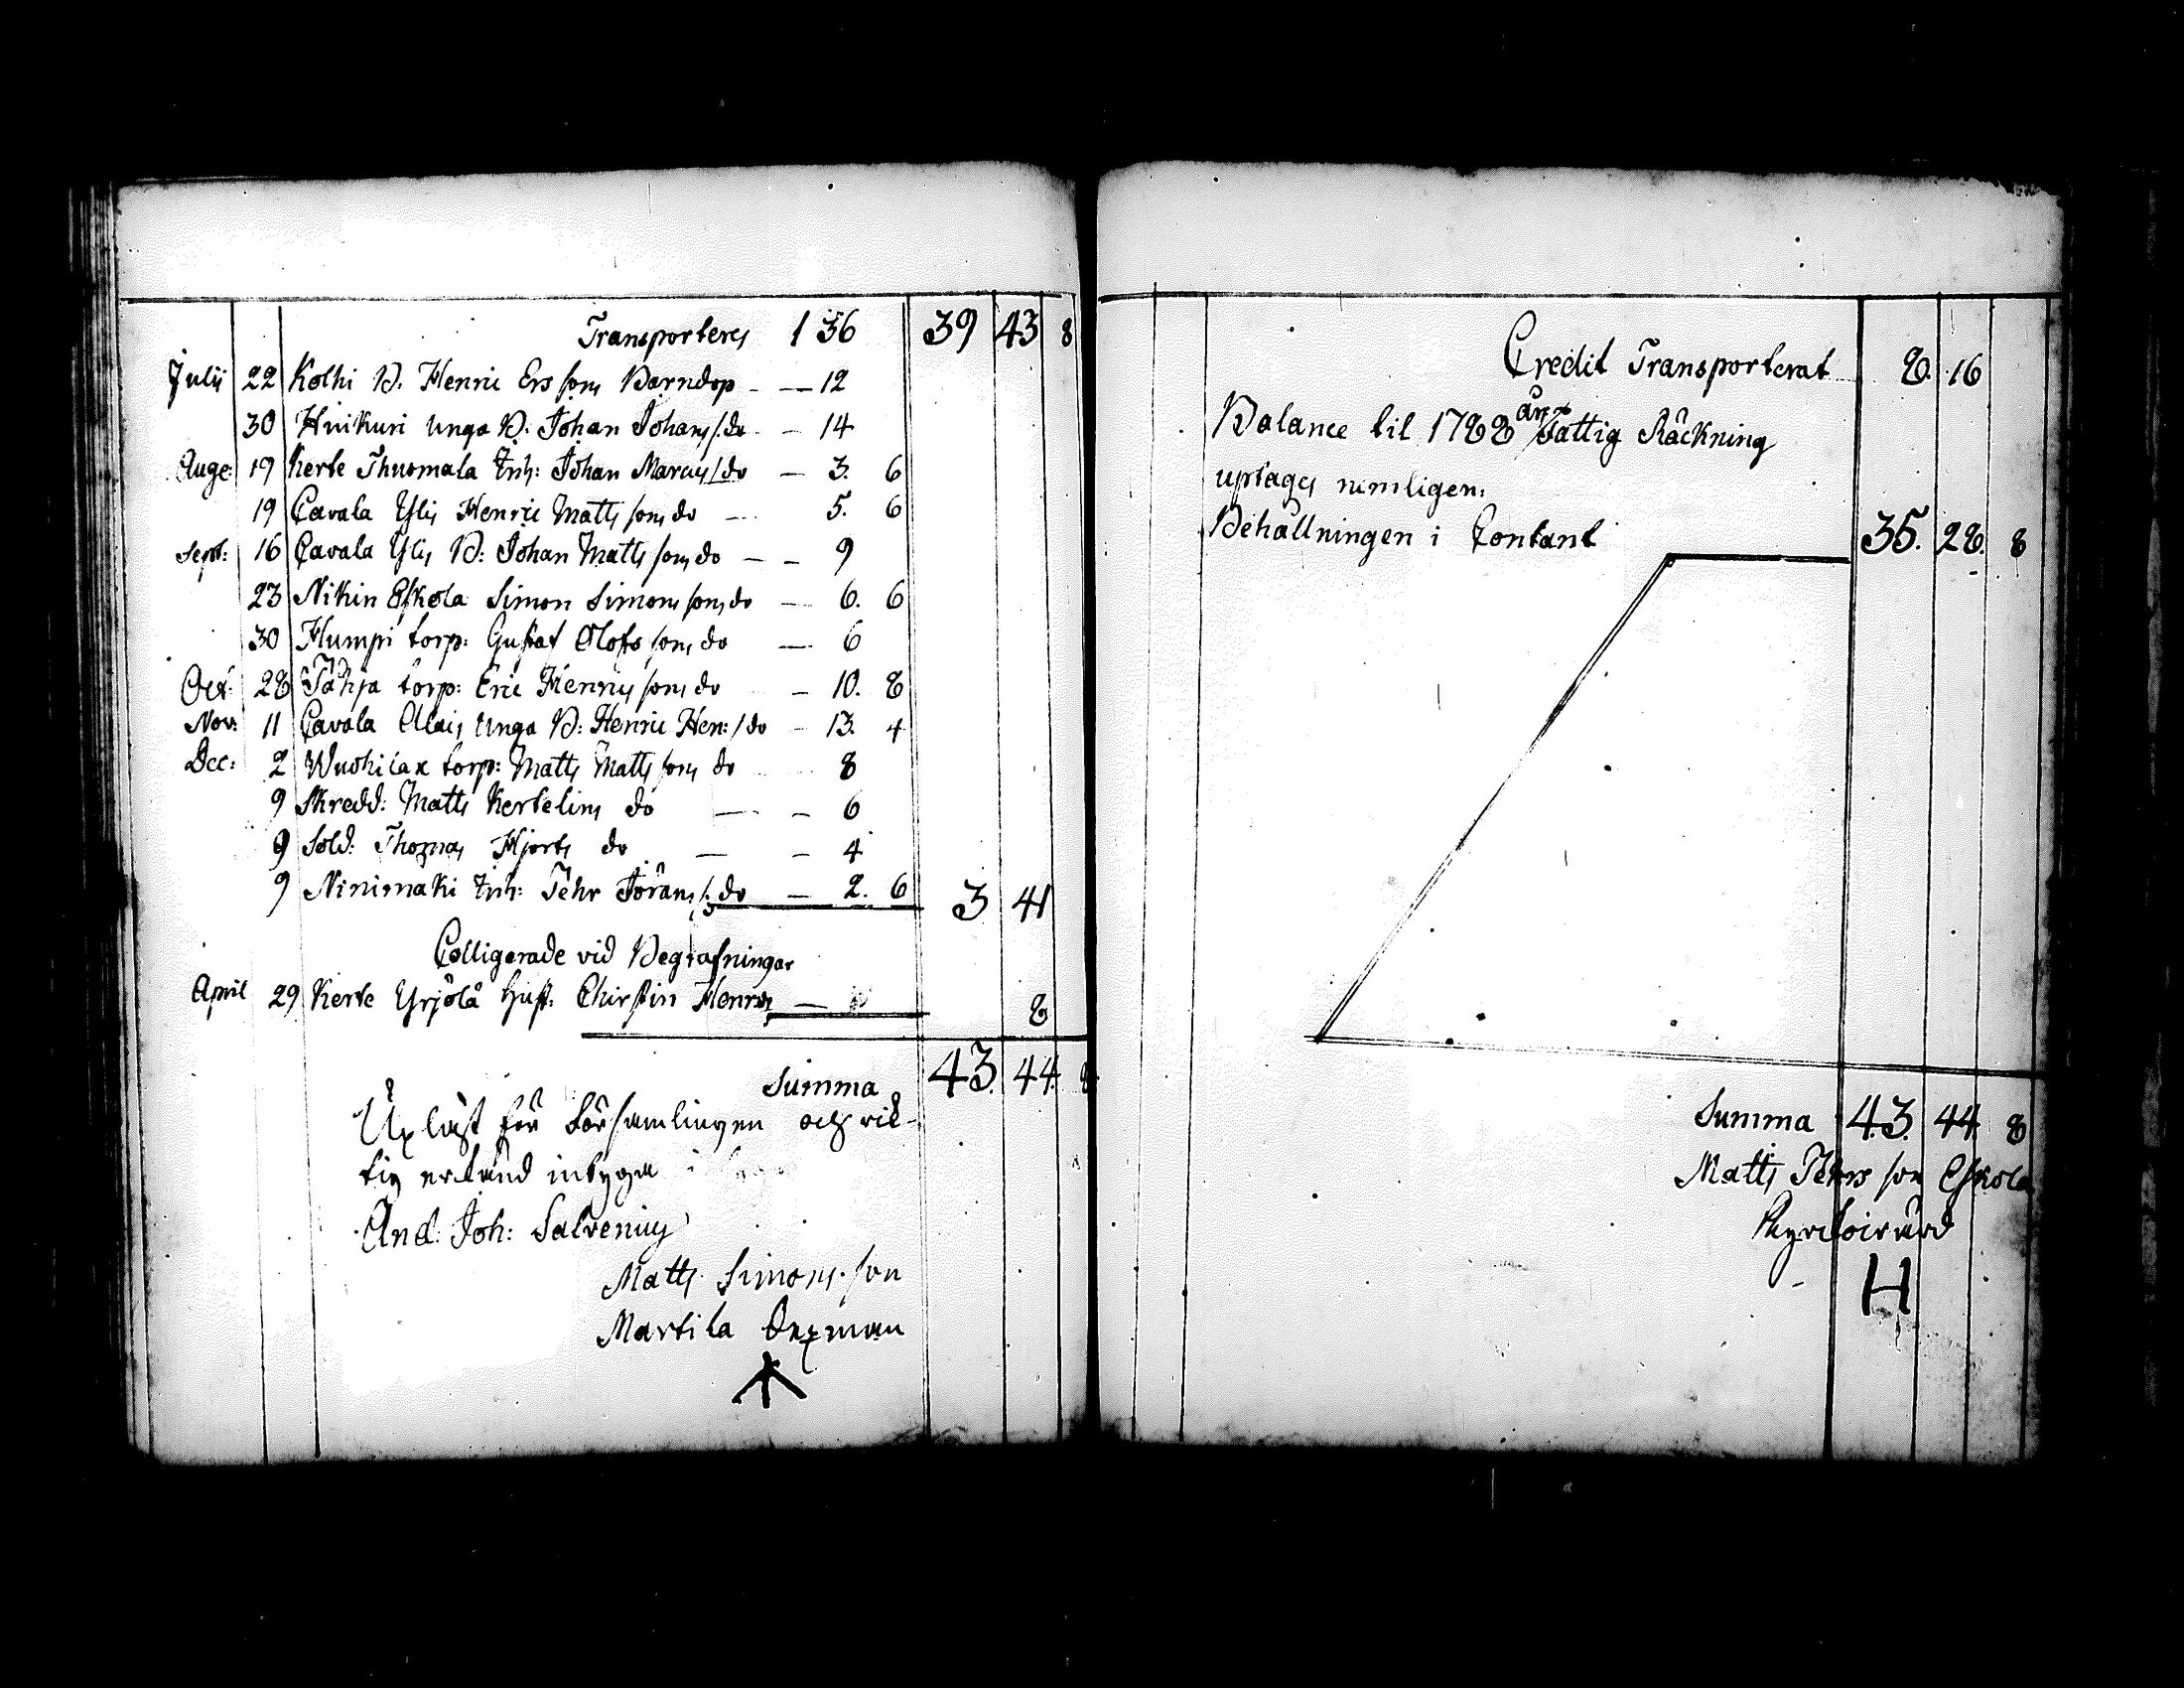 Transporteres 1 36 39 43 8
Julii 22 Kolhi B. Henric Ers sons Barndop - — 12
30 Hiukuri unga B: Johan Johans s: do - — 14
Aug: 19 Kerte Thuomala Inh: Johan Marcus s do — 3. 6
19 Cavala Ylis Henric Matts sons do — 5. 6
Sept: 16 Cavala Ylis B: Johan Matts sons do — - 9
23 Nikin Eskola Simon Simons sons do — 6. 6
30 Humpi torp: Gustaf Olofs sons do — 6
Oct: 28 Tähjä torp: Eric Henrics sons do - 10. 8
Nov: 11 Cavala Alais unga B: Henric Hen: s do - 13. 4
Dec: 2 Wuohilax torp: Matts Matts sons do 8
9 Skredd: Matts Kertelins do — - 6
9 Sold: Thomas Hjorts do — - 4
9 Ninimaki Inh: Pehr Jörans s: do — 2. 6 3 41
Colligerade vid Begrafningar
April 29 Kerte Yrjölä hust: Chirstin Henrics — 8
Summa 43. 44. 8
Upläst för församlingen och rik-
tig erkänd intygar
And: Joh: Salvenius
Matts Simons son
Martila Sexman
Credit Transporterat 8. 16
Balance til 1788 års Fattig Räckning
uptages nemligen.
Behållningen i Contant 35. 28. 8
Summa 43. 44 8
Matts Pehrs son Eskola
Kyrckovärd
H